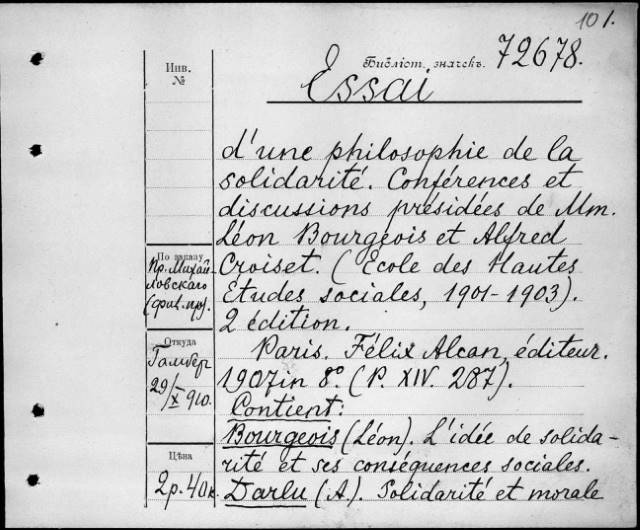 101.
Библіот. значекъ. 72678.
Инв.
№
Essai
d'une philosophie de la
solidarité. Conférences et
discussions présidées de Mm.
Léon Bourgeois et Alfred
Croiset. (Ecole des Hautes
Etudes sociales, 1901-1903).
2 édition.
Paris. Félix Alcan, éditeur.
1907 in 8º. (P. XIV. 287).
Contient:
Bourgeois (Léon). L'idée de solida-
rité et ses conséquences sociales.
Darlu (A.). Solidarité et morale
По заказу
Пр. Михай
ловскаго
Откуда
Гамбер
29/X 910.
Цѣна
2 р. 40 к.